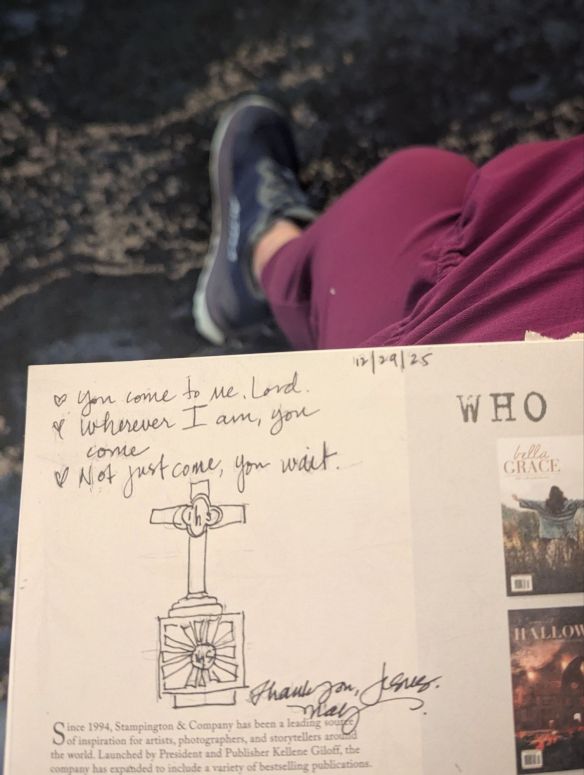 12/29/25
♡ You come to me, Lord.
♡ Wherever I am, you
come
♡ Not just come, you wait.
ihs
Thank you, Jesus.
May
WHO
bella
GRACE
HALLOW
Since 1994, Stampington & Company has been a leading source
of inspiration for artists, photographers, and storytellers around
the world. Launched by President and Publisher Kellene Giloff, the
company has expanded to include a variety of bestselling publications.